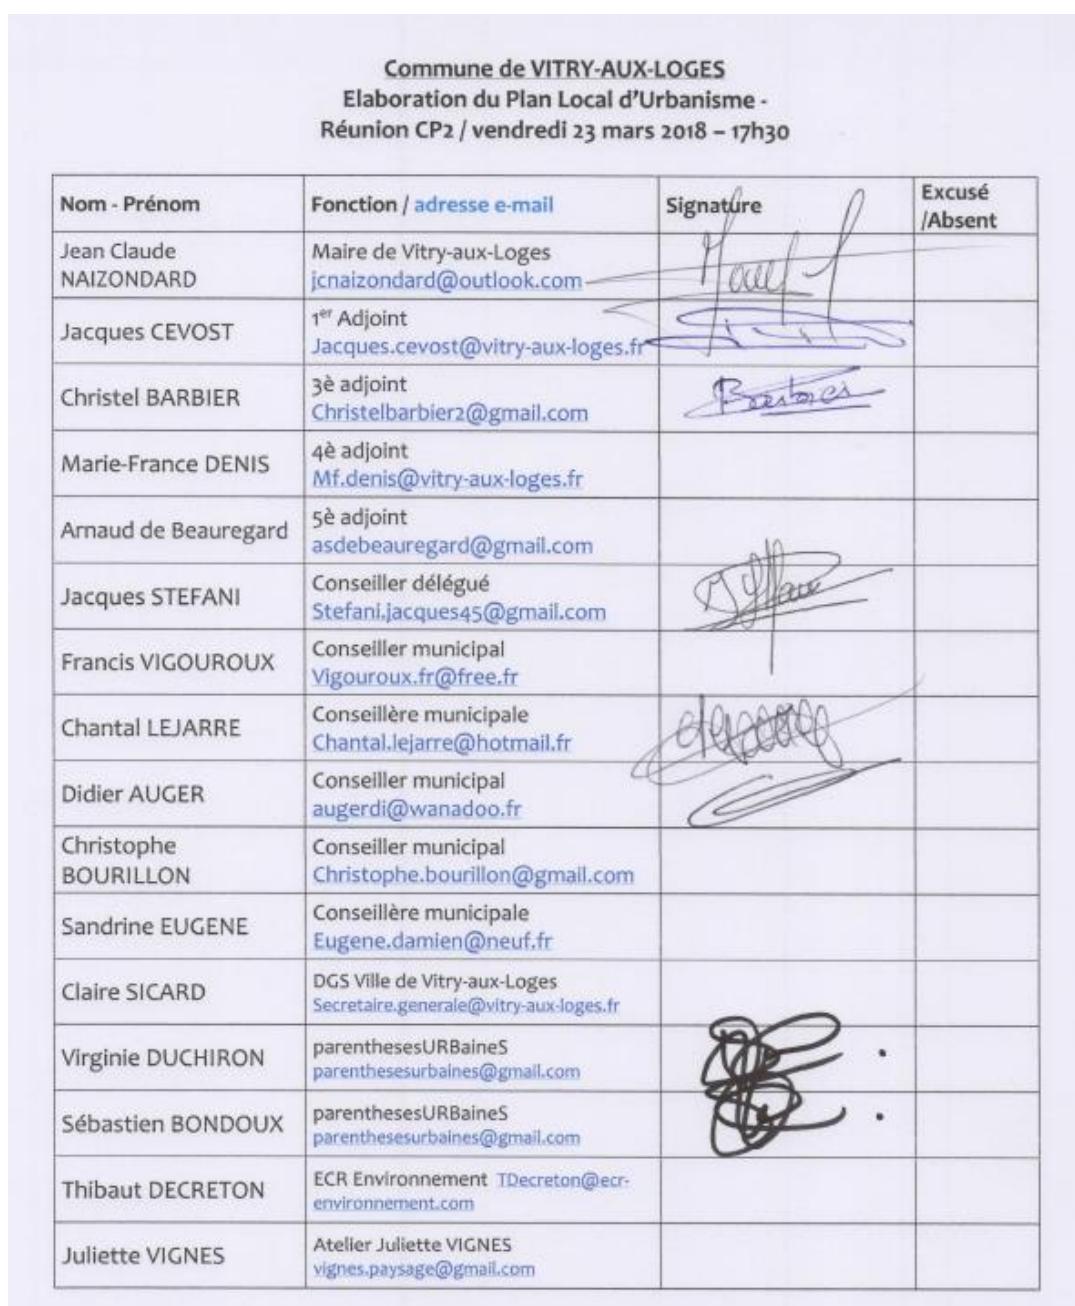 Commune de VITRY-AUX-LOGES
Elaboration du Plan Local d'Urbanisme -
Réunion CP2 / vendredi 23 mars 2018 – 17h30
Nom - Prénom
Fonction / adresse e-mail
Signature
Excusé
/Absent
Jean Claude
NAIZONDARD
Maire de Vitry-aux-Loges
jcnaizondard@outlook.com
Jacques CEVOST
1er Adjoint
Jacques.cevost@vitry-aux-loges.fr
Christel BARBIER
3è adjoint
Christelbarbier2@gmail.com
Marie-France DENIS
4è adjoint
Mf.denis@vitry-aux-loges.fr
Arnaud de Beauregard
5è adjoint
asdebeauregard@gmail.com
Jacques STEFANI
Conseiller délégué
Stefani.jacques45@gmail.com
Francis VIGOUROUX
Conseiller municipal
Vigouroux.fr@free.fr
Chantal LEJARRE
Conseillère municipale
Chantal.lejarre@hotmail.fr
Didier AUGER
Conseiller municipal
augerdi@wanadoo.fr
Christophe
BOURILLON
Conseiller municipal
Christophe.bourillon@gmail.com
Sandrine EUGENE
Conseillère municipale
Eugene.damien@neuf.fr
Claire SICARD
DGS Ville de Vitry-aux-Loges
Secretaire.generale@vitry-aux-loges.fr
Virginie DUCHIRON
parenthesesURBaineS
parenthesesurbaines@gmail.com
Sébastien BONDOUX
parenthesesURBaineS
parenthesesurbaines@gmail.com
Thibaut DECRETON
ECR Environnement TDecreton@ecr-
environnement.com
Juliette VIGNES
Atelier Juliette VIGNES
vignes.paysage@gmail.com